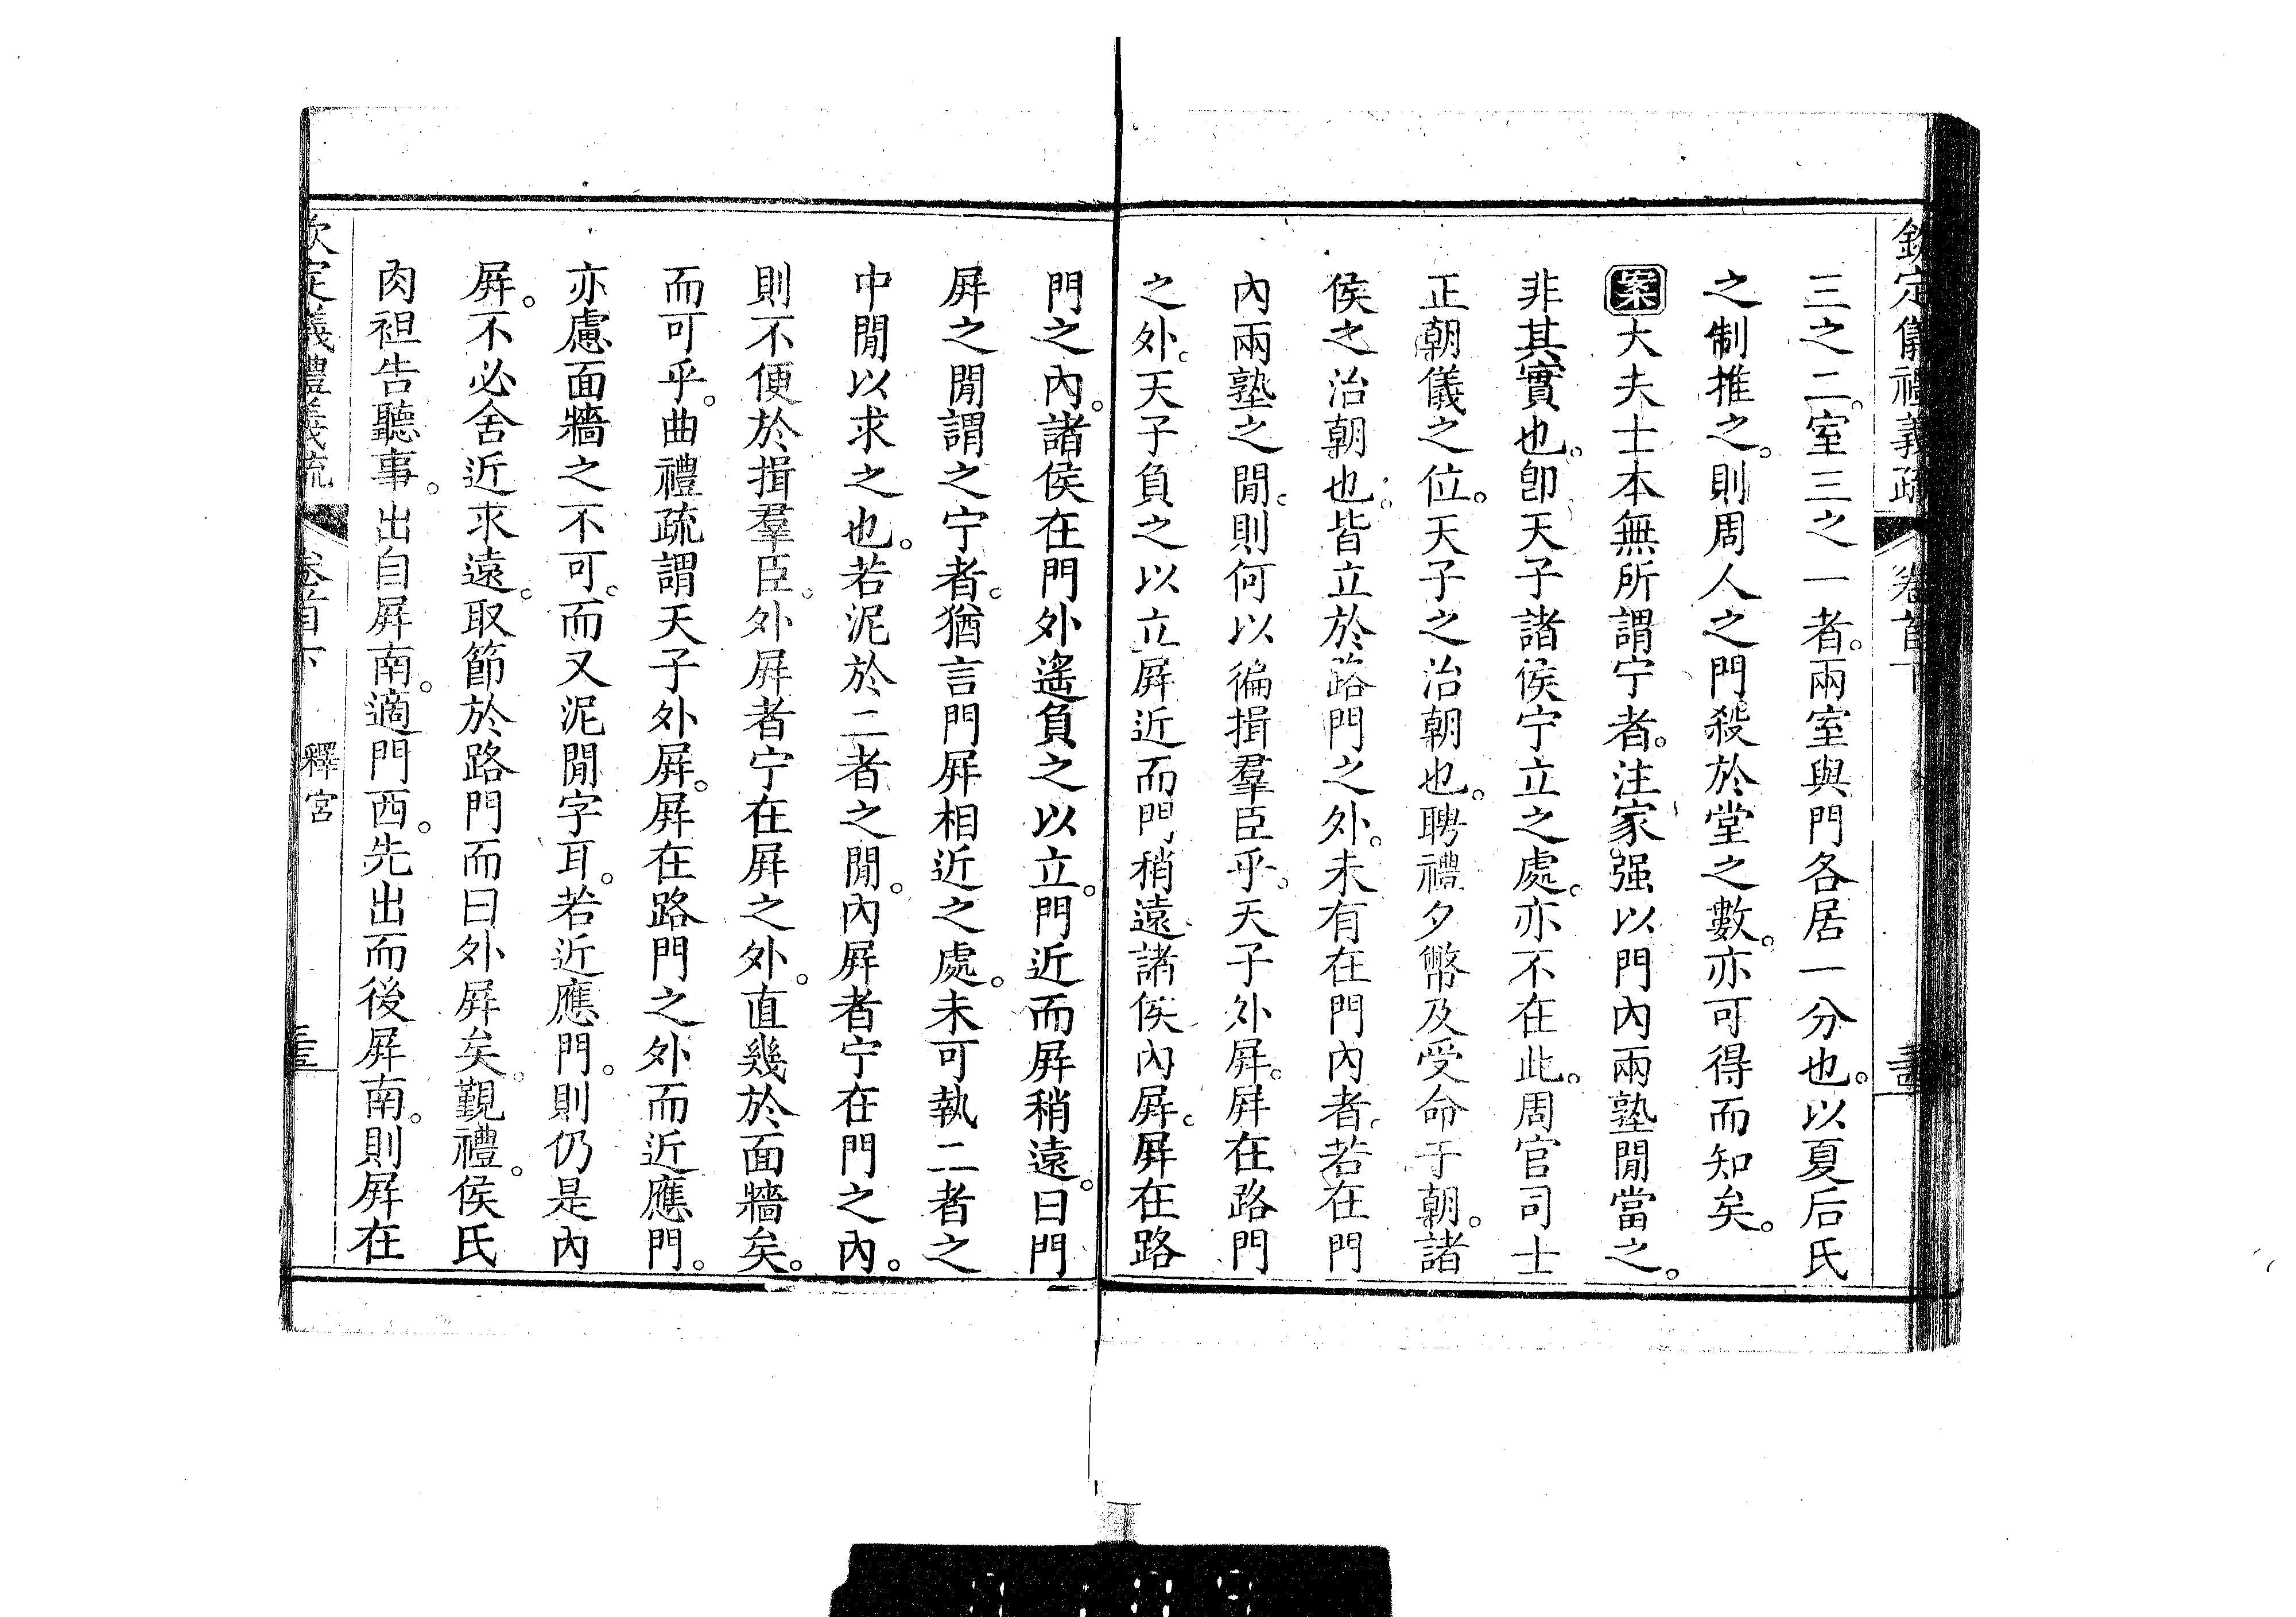 欽定儀禮義疏　卷首下
三之二。室三之一者。兩室與門各居一分也。以夏后氏
之制推之。則周人之門殺於堂之數。亦可得而知矣。
案大夫士本無所謂宁者。注家强以門內兩塾閒當之。
非其實也。卽天子諸侯宁立之處。亦不在此。周官司士
正朝儀之位。天子之治朝也。聘禮夕幣及受命于朝。諸
侯之治朝也。皆立於路門之外。未有在門內者。若在門
內兩塾之閒。則何以徧揖羣臣乎。天子外屛。屛在路門
之外。天子負之以立屛近而門稍遠諸侯內屛。屛在路
門之內。諸侯在門外遙負之以立。門近而屛稍遠。曰門
屛之閒謂之宁者。猶言門屛相近之處。未可執二者之
中閒以求之也。若泥於二者之閒。內屛者宁在門之內。
則不便於揖羣臣。外屛者宁在屛之外。直幾於面牆矣。
而可乎。曲禮疏謂天子外屛。屛在路門之外而近應門。
亦慮面牆之不可。而又泥閒字耳。若近應門。則仍是內
屛。不必舍近求遠。取節於路門而曰外屛矣。覲禮。侯氏
肉袒告聽事。出自屛南。適門西。先出而後屛南。則屛在
欽定儀禮義疏　卷首下　釋宮